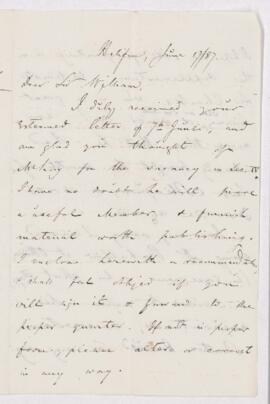 Halifax, June 17/87.
Dear Sir William,
I duly received your
esteemed letter of 7th June, and
am glad you thought of
McKay for the vacancy in Sec. IV
I have no doubt he will prove
a useful Member, & furnish
material worth publishing.
I enclose herewith a recommendat
& shall be obliged if you
will sign it & forward to the
proper quarter. If not in proper
form, please alter or correct
in any way.